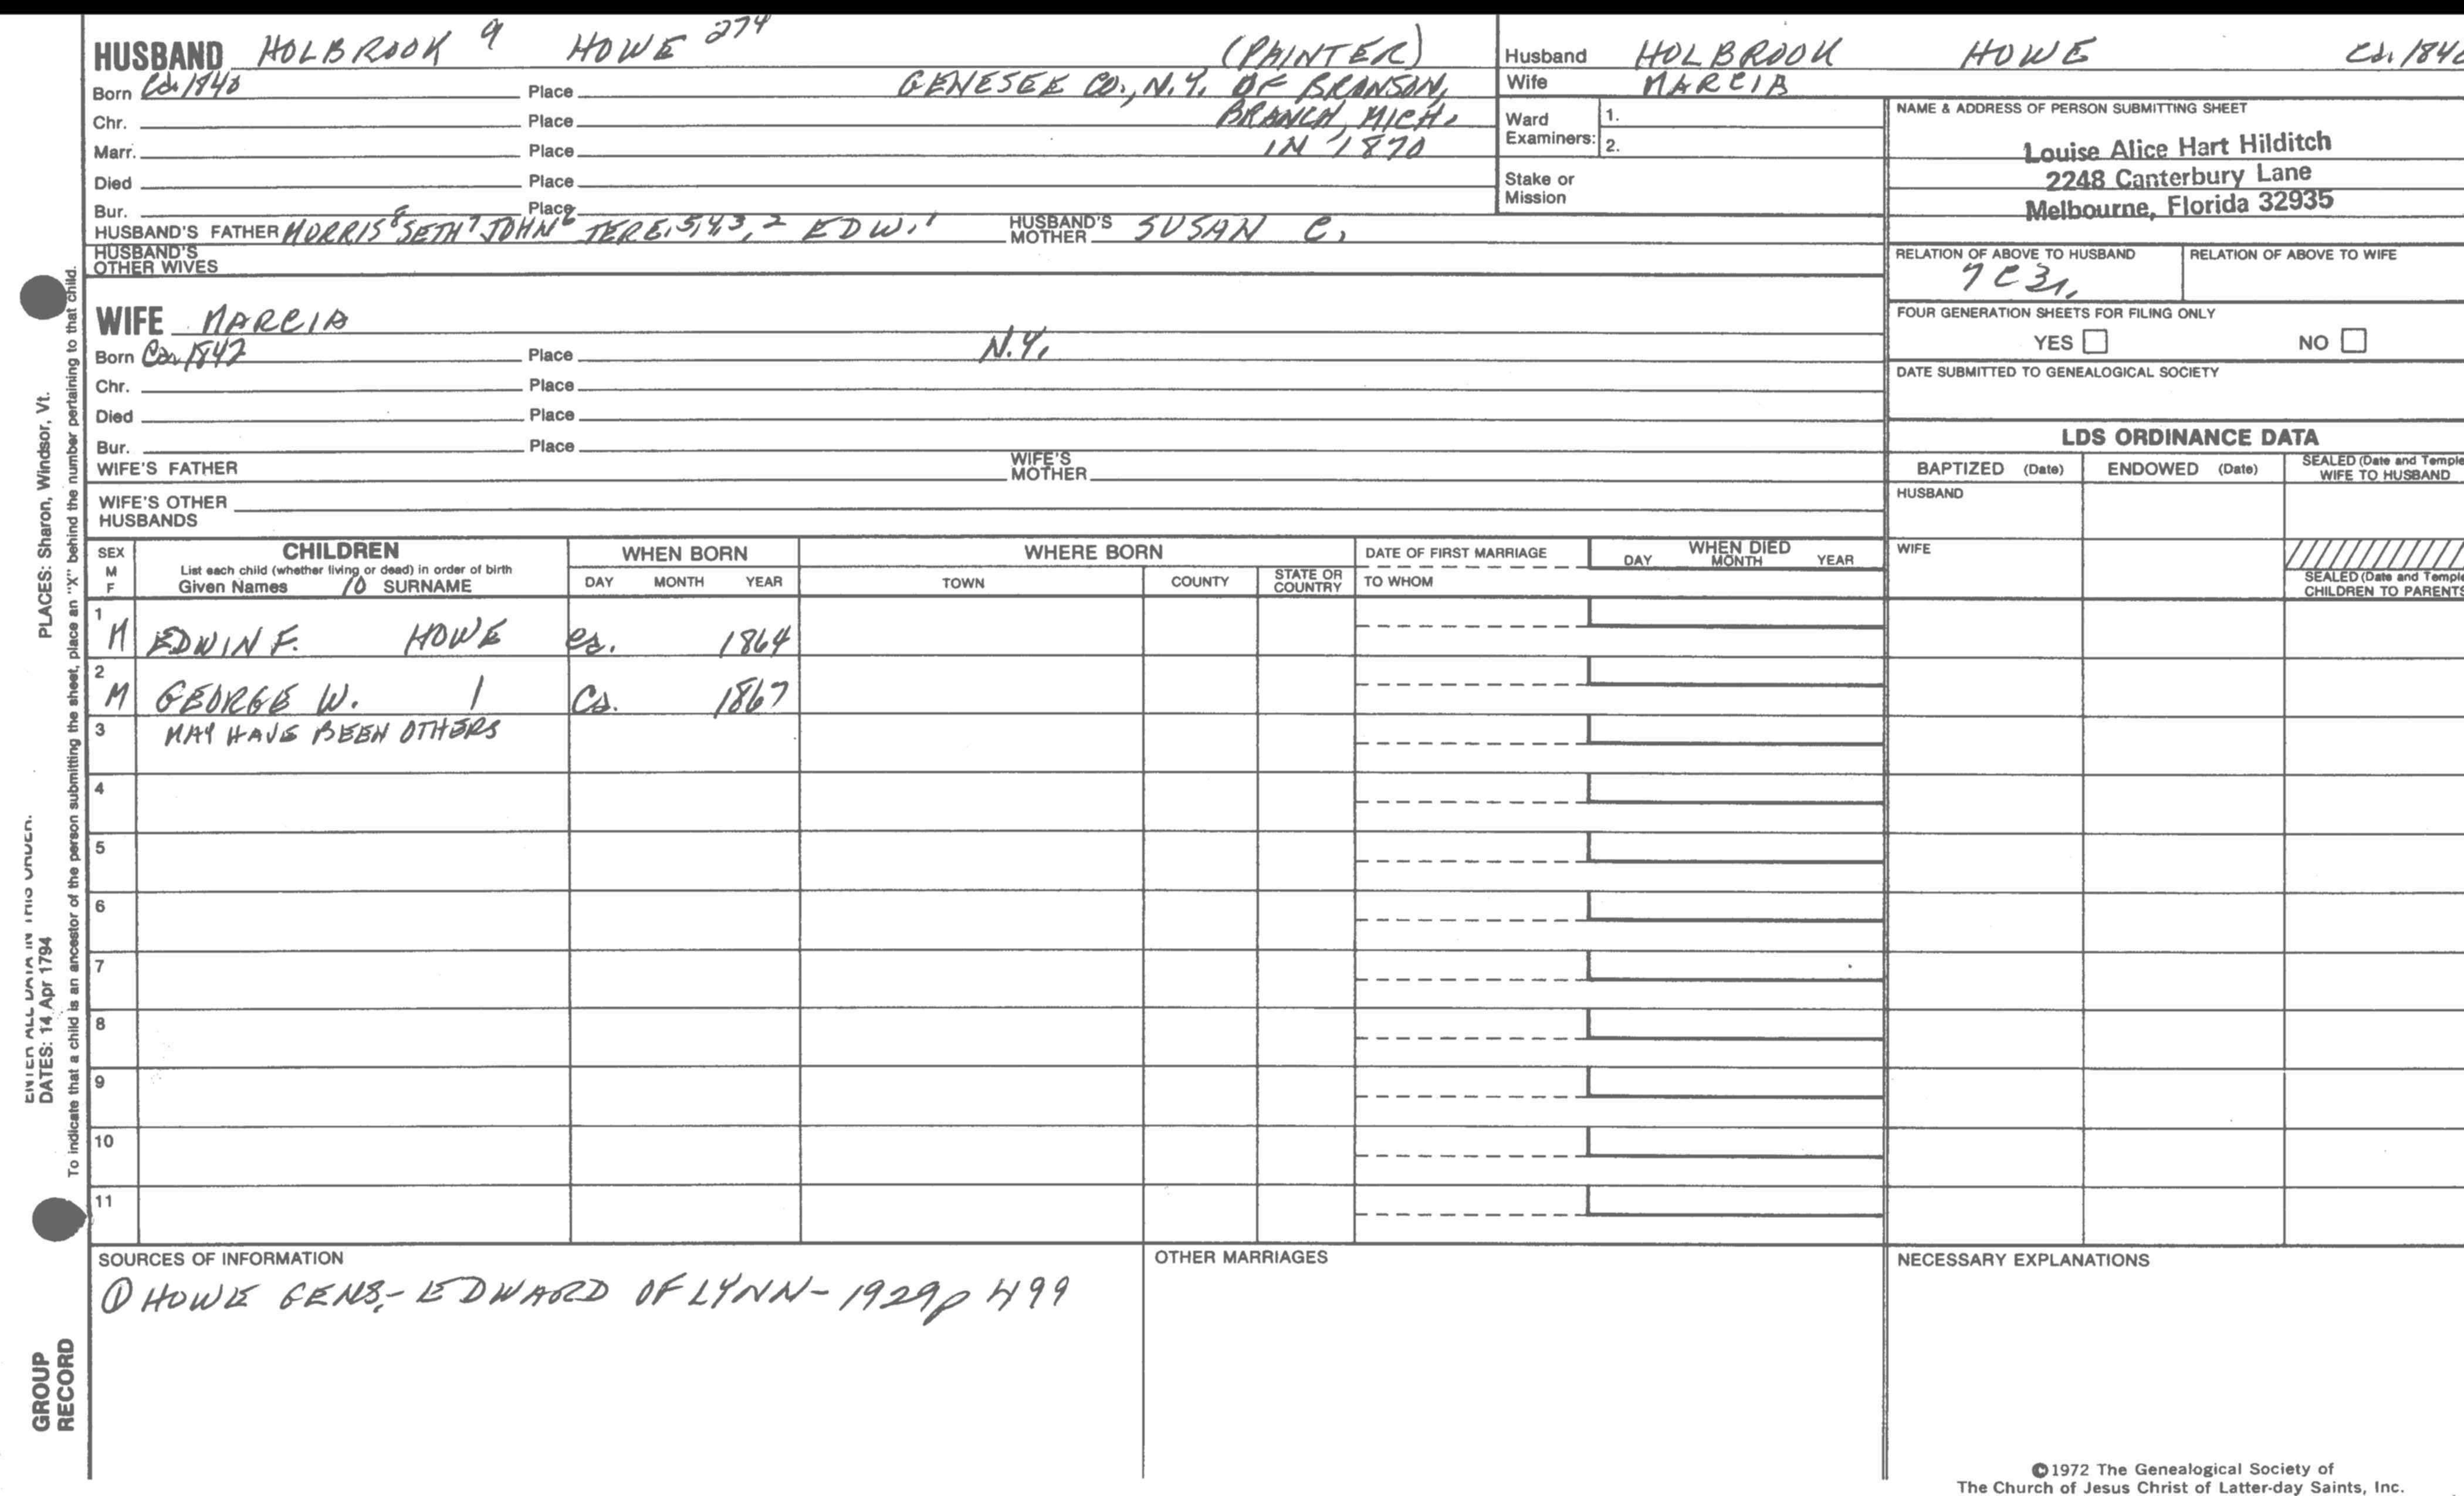 HUSBAND HOLBROOK 9 HOWE 274 (PAINTER)
Born Ca. 1840 Place GENESEE CO., N.Y. OF BRANSON,
Chr. Place BRANCH, MICH.
Marr. Place IN 1870
Died Place
Bur. Place
HUSBAND'S FATHER MORRIS8 SETH7 JOHN6 JERE.5,4,3,2 EDW.1 HUSBAND'S MOTHER SUSAN C.
HUSBAND'S OTHER WIVES
WIFE MARCIA
Born Ca. 1842 Place N.Y.
Chr. Place
Died Place
Bur. Place
WIFE'S FATHER WIFE'S MOTHER
WIFE'S OTHER HUSBANDS
Husband HOLBROOK HOWE Ca. 1840
Wife MARCIA
Ward Examiners: 1.
2.
Stake or Mission
NAME & ADDRESS OF PERSON SUBMITTING SHEET
Louise Alice Hart Hilditch
2248 Canterbury Lane
Melbourne, Florida 32935
RELATION OF ABOVE TO HUSBAND RELATION OF ABOVE TO WIFE
7C3r.
FOUR GENERATION SHEETS FOR FILING ONLY
YES NO
DATE SUBMITTED TO GENEALOGICAL SOCIETY
LDS ORDINANCE DATA
BAPTIZED (Date) ENDOWED (Date) SEALED (Date and Temple
WIFE TO HUSBAND
HUSBAND
WIFE
SEALED (Date and Temple
CHILDREN TO PARENTS
SEX M F
CHILDREN
List each child (whether living or dead) in order of birth
Given Names 10 SURNAME
WHEN BORN
DAY MONTH YEAR
WHERE BORN
TOWN COUNTY STATE OR COUNTRY
DATE OF FIRST MARRIAGE
TO WHOM
WHEN DIED
DAY MONTH YEAR
1 M EDWIN F. HOWE ca. 1864
2 M GEORGE W. | Ca. 1867
3 MAY HAVE BEEN OTHERS
4
5
6
7
8
9
10
11
SOURCES OF INFORMATION
① HOWE GENS,- EDWARD OF LYNN- 1929 p 499
OTHER MARRIAGES
NECESSARY EXPLANATIONS
©1972 The Genealogical Society of
The Church of Jesus Christ of Latter-day Saints, Inc.
PLACES: Sharon, Windsor, Vt.
ENTER ALL DATA IN THIS ORDER.
DATES: 14 Apr 1794
To indicate that a child is an ancestor of the person submitting the sheet, place an "X" behind the number pertaining to that child.
GROUP
RECORD